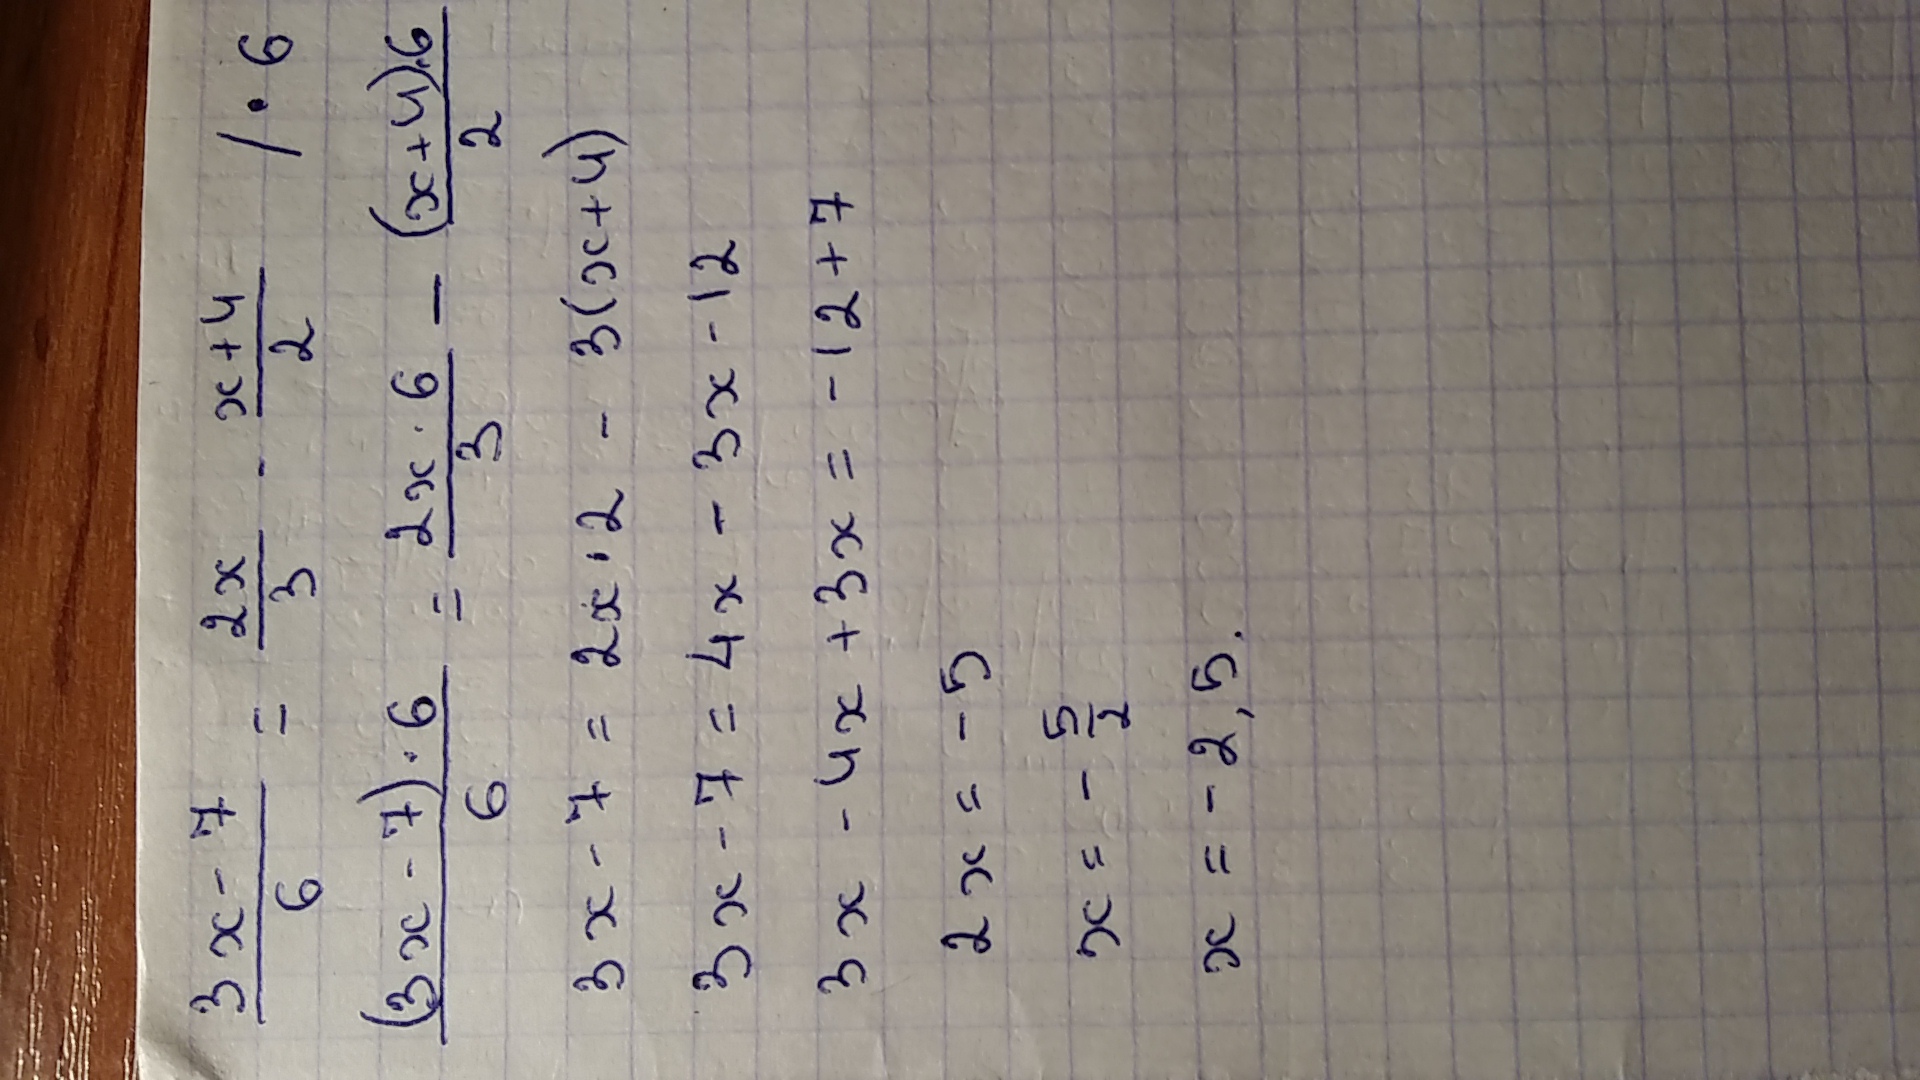 (3x - 7)/6 = 2x/3 - (x+4)/2 / · 6
((3x - 7) · 6)/6 = (2x · 6)/3 - ((x+4)·6)/2
3x - 7 = 2x · 2 - 3(x+4)
3x - 7 = 4x - 3x - 12
3x - 4x + 3x = -12 + 7
2x = -5
x = - 5/2
x = -2,5.